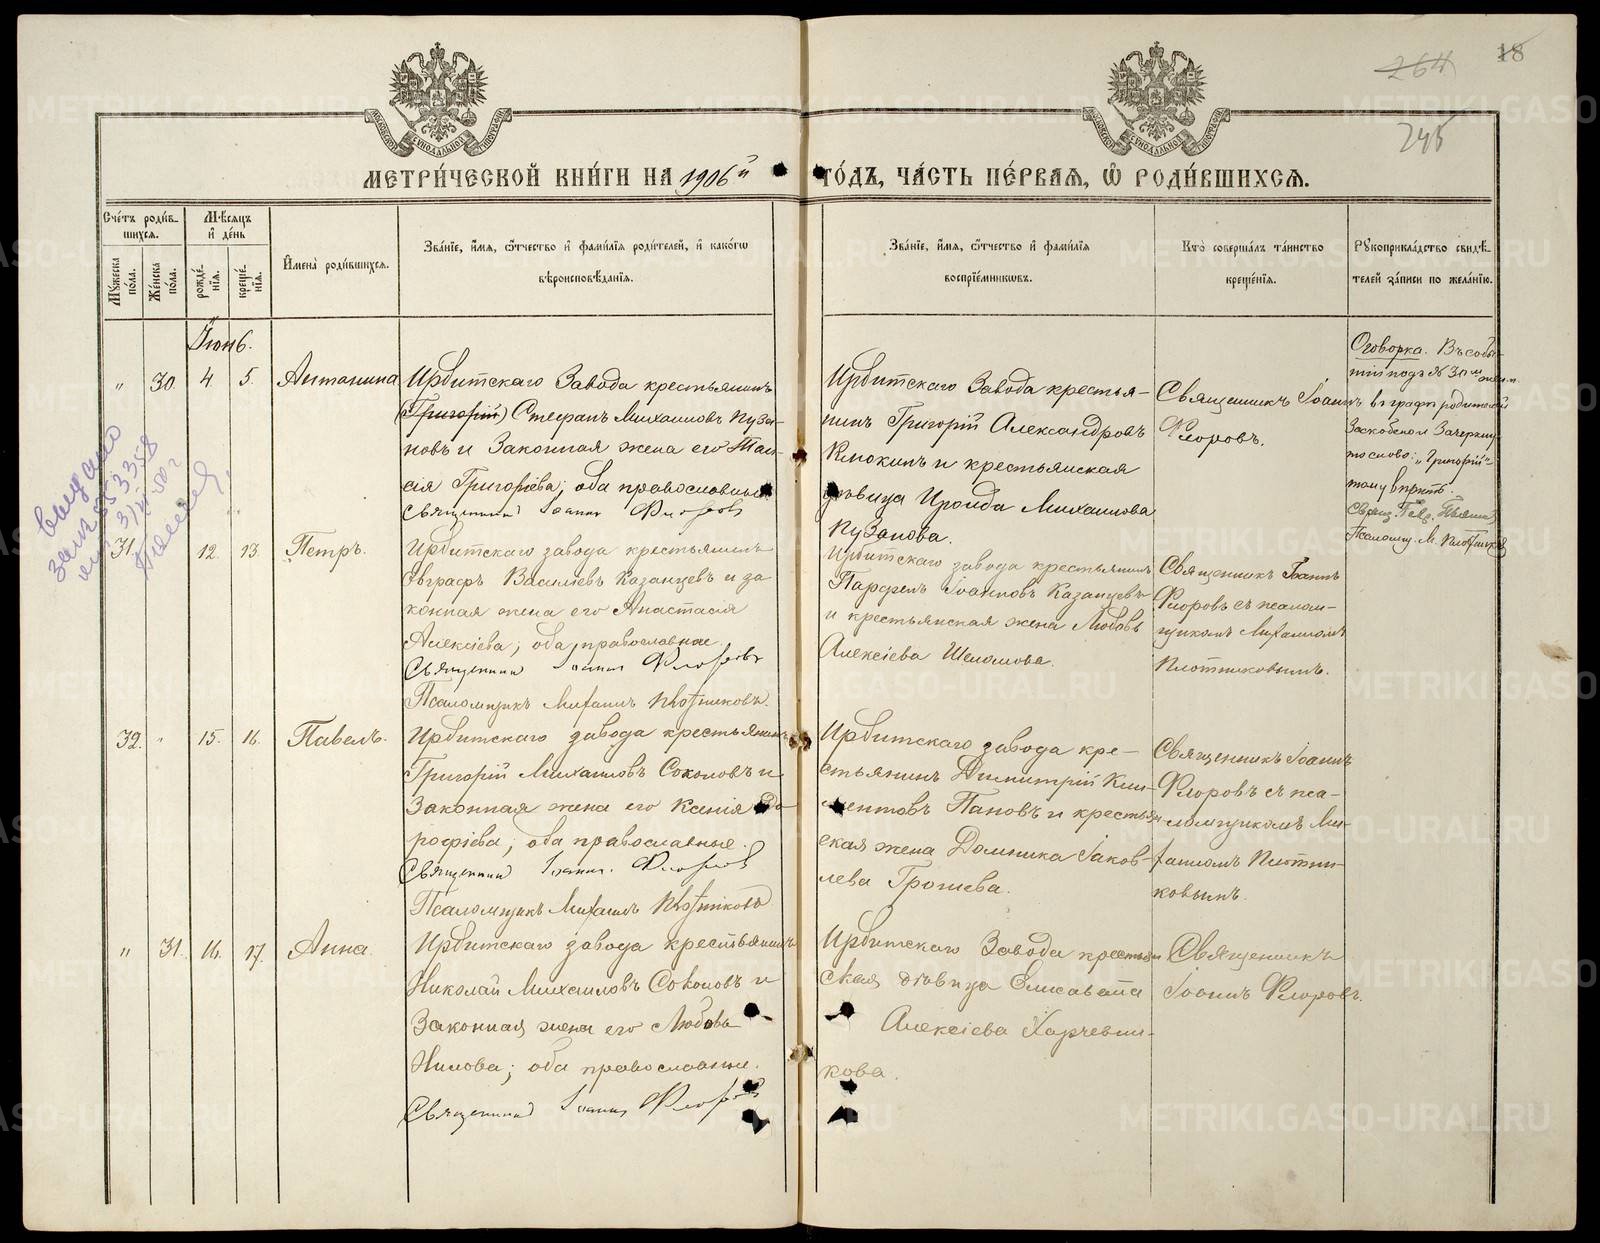 18
264
245
МЕТРИ́ЧЕСКОЙ КНИ́ГИ НА 1906й ГО́ДЪ, ЧА́СТЬ ПЕ́РВАЯ, Ѡ҆ РОДИ́ВШИХСЯ.
Сче́тъ роди́вшихся.
Му́жеска по́ла.
Же́нска по́ла.
Мѣ́сяцъ и҆ де́нь
рожде́нїя.
креще́нїя.
И҆мена̀ роди́вшихся.
Зва́нїе, и҆́мя, ѻ҆́тчество и҆ фами́лїя роди́телей, и҆ како́гѡ
вѣроисповѣ́данїя.
Зва́нїе, и҆́мя, ѻ҆́тчество и҆ фами́лїя
воспрїе́мниковъ.
Кто̀ соверша́лъ та́инство
креще́нїя.
Рукоприкла́дство свидѣ́-
телей за́писи по жела́нїю.
Іюнь.
" 30. 4. 5. Антонина
Ирбитскаго Завода крестьянинъ
(Григорій) Стефанъ Михаиловъ Пуза-
новъ и Законная жена его Таи-
сія Григоріева; оба православные
Священникъ Іоаннъ Флоровъ
Ирбитскаго Завода крестья-
нинъ Григорій Александровъ
Клюкинъ и крестьянская
дѣвица Ираида Михаилова
Пузанова.
Священникъ Іоаннъ
Флоровъ.
Оговорка. Въ собы-
тіи подъ № 30м женск.
въ графѣ родителей
Заскобленом Зачеркну-
то слово: „Григорій"
Псаломщ. М. Плотников
31. 12. 13. Петръ.
Ирбитскаго завода крестьянинъ
Евграфъ Василіевъ Казанцевъ и за
конная жена его Анастасія
Алексіева; оба православные
Священникъ Іоаннъ Флоровъ
Псаломщикъ Михаилъ Плотниковъ.
Ирбитскаго завода крестьянинъ
Парфенъ Іоанновъ Казанцевъ
и крестьянская жена Любовь
Алексіева Шеломова.
Священникъ Іоаннъ
Флоровъ съ псалом-
щикомъ Михаиломъ
Плотниковымъ.
32. " 15. 16. Павелъ.
Ирбитскаго завода крестьянинъ
Григорій Михаиловъ Соколовъ и
Законная жена его Ксенія До-
рофіева; оба православные.
Священникъ Іоаннъ Флоровъ
Псаломщикъ Михаилъ Плотниковъ
Ирбитскаго завода кре-
стьянинъ Димитрій Кли-
ментовъ Пановъ и крестьян-
ская жена Домника Іаков-
лева Грошева.
Священникъ Іоаннъ
Флоровъ съ пса-
ломщикомъ Ми-
хаиломъ Плотни-
ковымъ.
" 31. 16. 17. Анна.
Ирбитскаго завода крестьянинъ
Николай Михаиловъ Соколовъ и
Законная жена его Любовь
Нилова; оба православные.
Священникъ Іоаннъ Флоровъ
Ирбитскаго Завода крестьян
ская дѣвица Елисавета
Алексіева Харчевни-
кова.
Священникъ
Іоаннъ Флоровъ.
METRIKI.GASO-URAL.RU